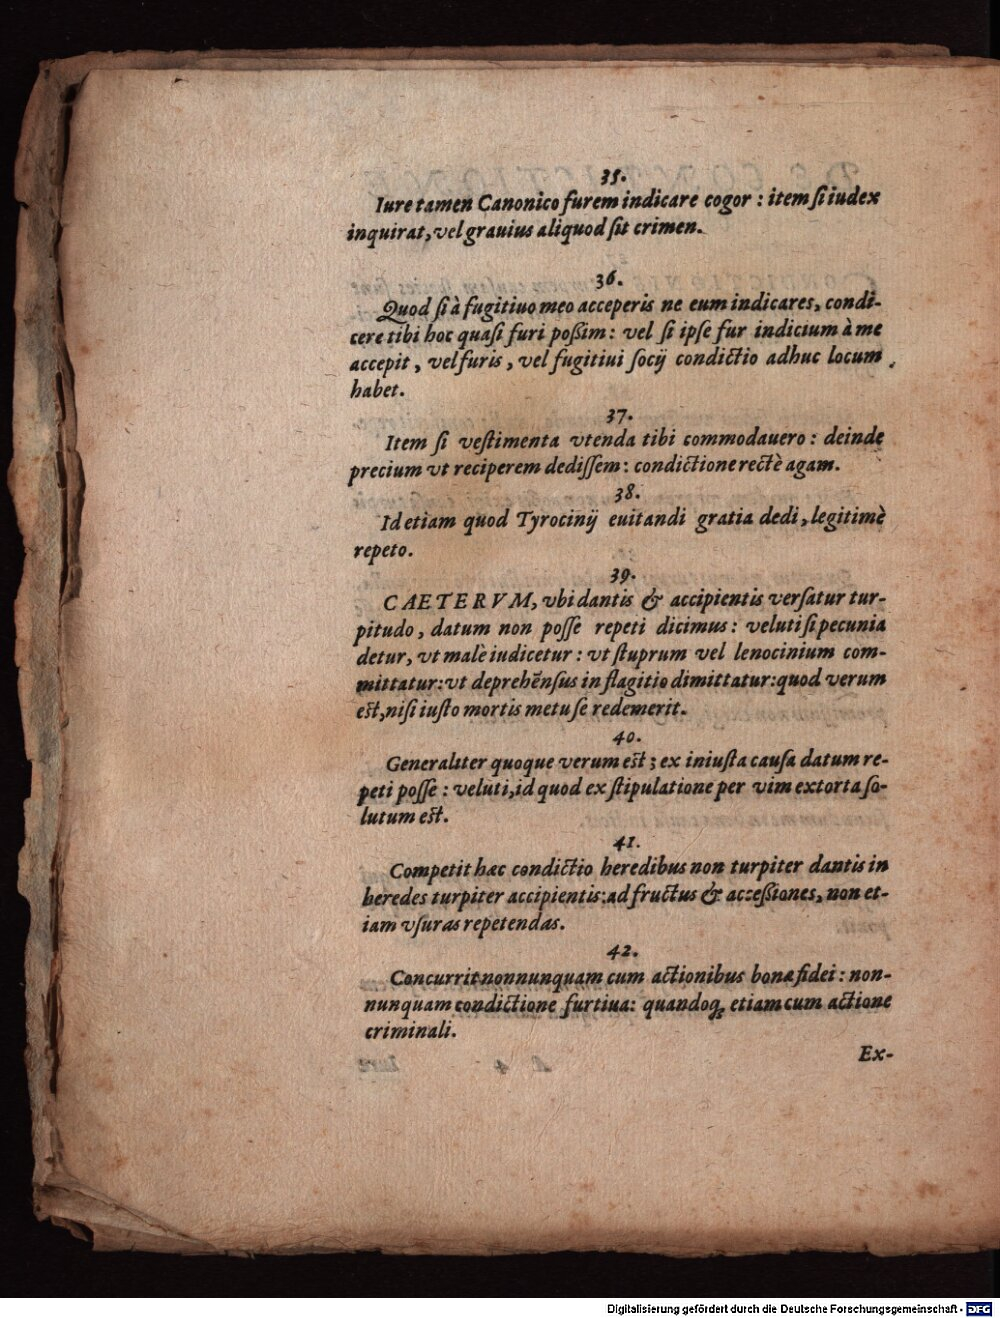 35.
Iure tamen Canonico furem indicare cogor : item ſi iudex
inquirat, vel grauius aliquod ſit crimen.
36.
Quod ſi à fugitiuo meo acceperis ne eum indicares, condi-
cere tibi hoc quaſi furi poßim : vel ſi ipſe fur indicium à me
accepit, vel furis, vel fugitiui ſocij condictio adhuc locum
habet.
37.
Item ſi veſtimenta vtenda tibi commodauero : deinde
precium vt reciperem dediſſem : condictione rectè agam.
38.
Id etiam quod Tyrocinij euitandi gratia dedi, legitimè
repeto.
39.
CAETERVM, vbi dantis & accipientis verſatur tur-
pitudo, datum non poſſe repeti dicimus : veluti ſi pecunia
detur, vt malè iudicetur : vt ſtuprum vel lenocinium com-
mittatur: vt deprehēnſus in flagitio dimittatur: quod verum
eſt, niſi iuſto mortis metu ſe redemerit.
40.
Generaliter quoque verum eſt ; ex iniuſta cauſa datum re-
peti poſſe : veluti, id quod ex ſtipulatione per vim extorta ſo-
lutum eſt.
41.
Competit hæc condictio heredibus non turpiter dantis in
heredes turpiter accipientis: ad fructus & acceßiones, non et-
iam vſuras repetendas.
42.
Concurrit nonnunquam cum actionibus bonæ fidei : non-
nunquam condictione furtiua: quandoq; etiam cum actione
criminali.
Ex-
Digitalisierung gefördert durch die Deutsche Forschungsgemeinschaft - DFG